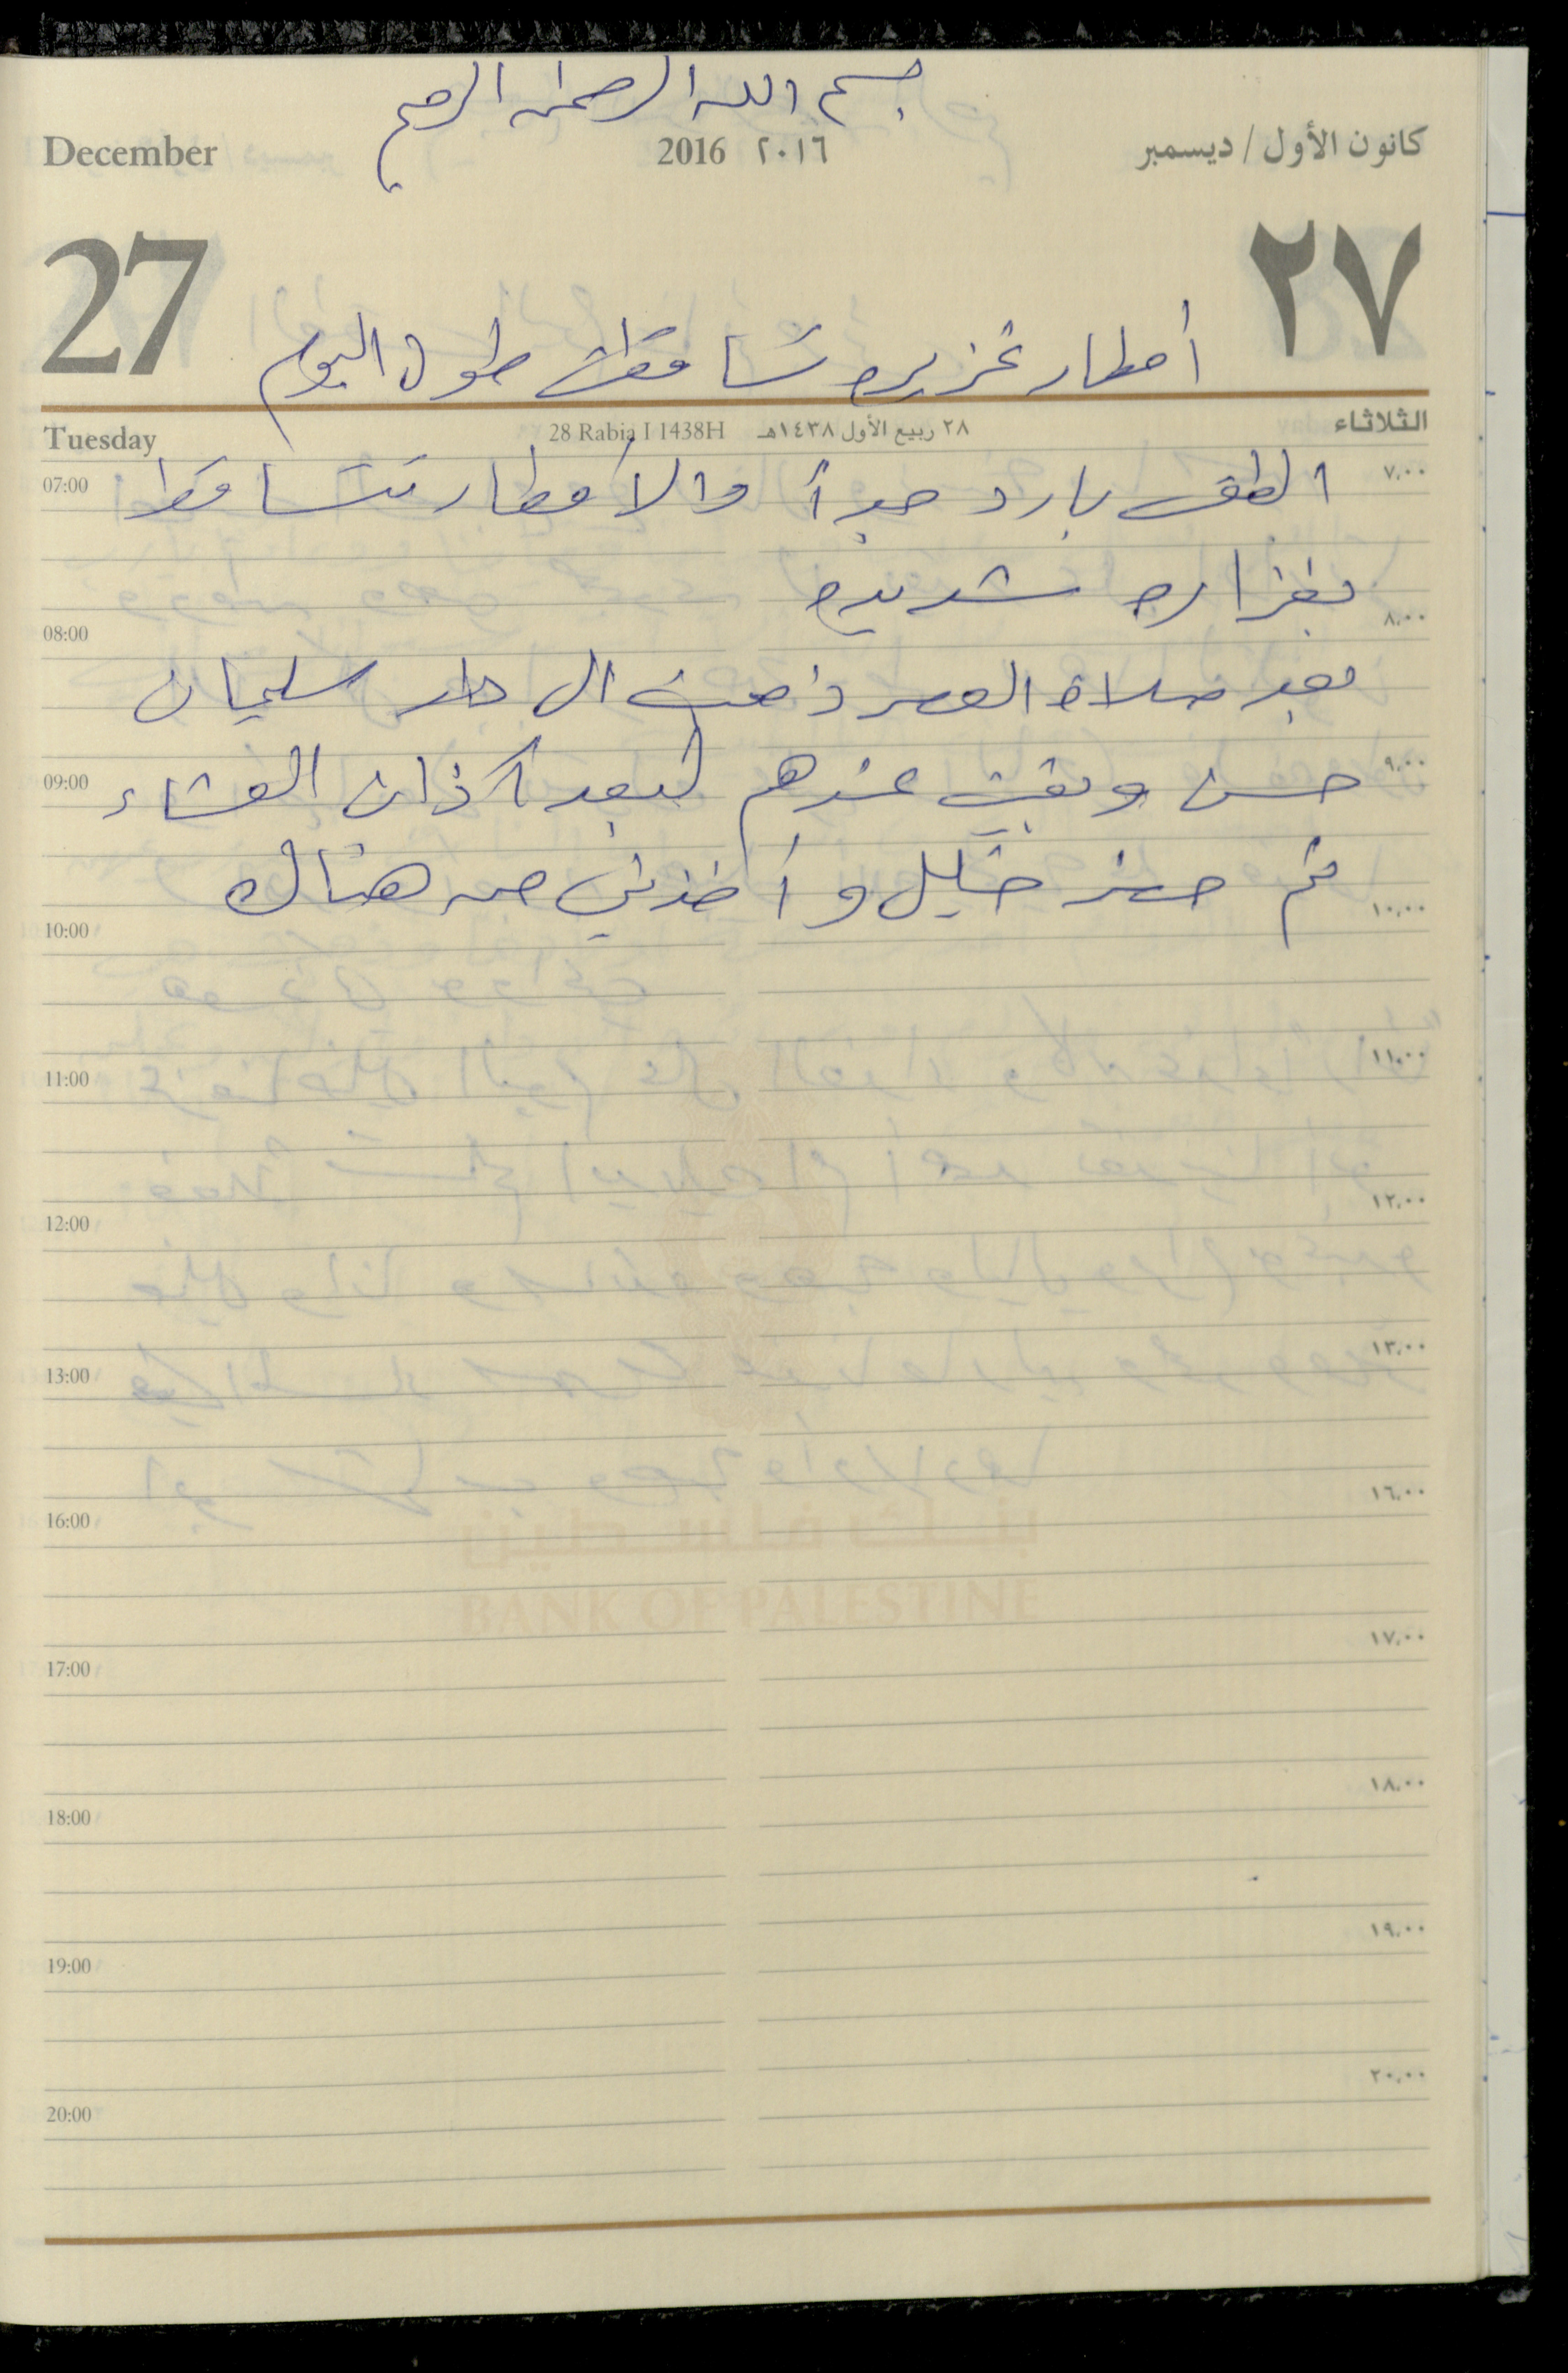 بسم الله الرحمن الرحيم
December 2016 ٢٠١٦ كانون الأول / ديسمبر
27 ٢٧
أمطار غزيره تساقطت طول اليوم
Tuesday 28 Rabia I 1438H ٢٨ ربيع الأول ١٤٣٨هـ الثلاثاء
07:00 ٧,٠٠
الطقس بارد جداً والأمطار تتساقط
بغزاره شديده
08:00 ٨,٠٠
بعد صلاة العصر ذهبت الى دار سليمان
09:00 ٩,٠٠
حسن وبقيت عندهم لبعد آذان العشاء
ثم حضر خليل وأخذني من هناك
10:00 ١٠,٠٠
11:00 ١١,٠٠
12:00 ١٢,٠٠
13:00 ١٣,٠٠
16:00 ١٦,٠٠
بنك فلسطين
BANK OF PALESTINE
17:00 ١٧,٠٠
18:00 ١٨,٠٠
19:00 ١٩,٠٠
20:00 ٢٠,٠٠